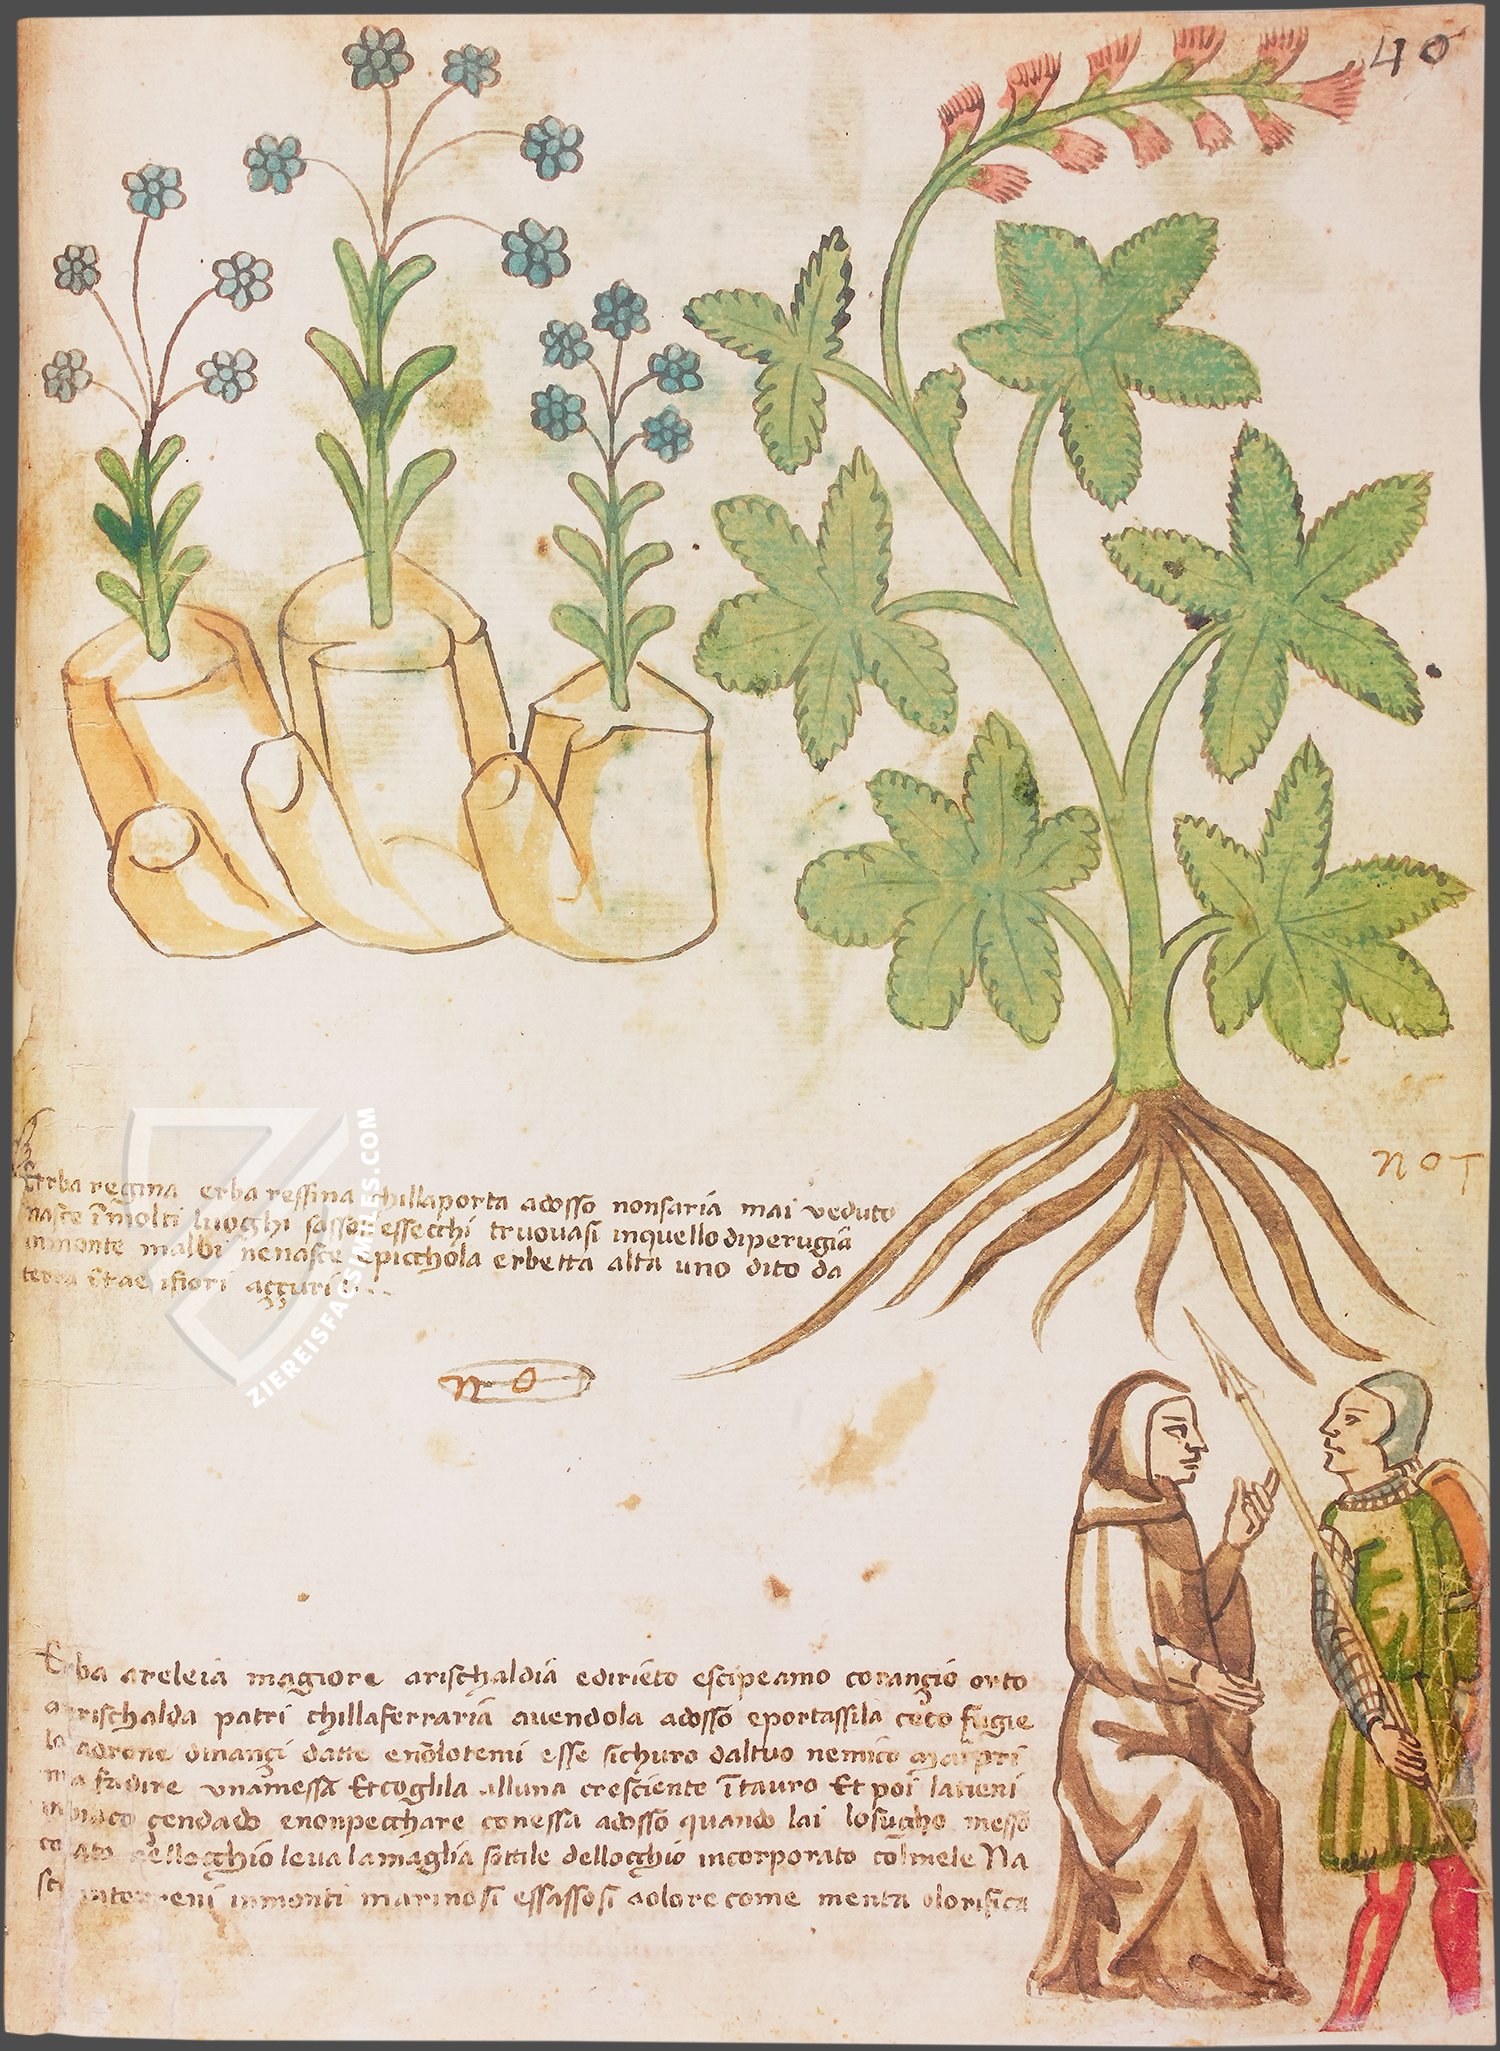 40
Erba regina erba ressina chillaporta adosso nonsaria mai veduto
nasce īmolti luoghi sassosi essecchi truovasi inquello diperugia
inmonte malbi nenasce epicchola erbetta alta uno dito da
terra Etae ifiori açguri
not
no
Erba areleia magiore arischaldia edirieto escipeamo corançio orto
arischalda patri chillaferraria avendola adosso eportassila ceco fugie
la adrone dinançi datte enolotemi esse sichuro daltuo nemico
ma fadire unamessa Etcoglila alluna cresciente ītauro Et poi latieni
inbiaco çendado enonpecchare conessa adosso quando lai losugho messo
dellocchio leva lamaglia sottile dellocchio incorporato colmele Na
sci interreni inmonti marinosi essassosi aolore come menta olorifica
ZIEREISFACSIMILES.COM